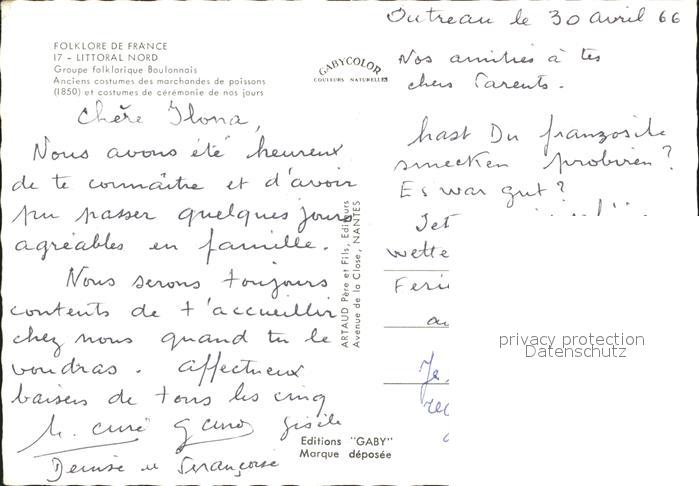 FOLKLORE DE FRANCE
17 - LITTORAL NORD
Groupe folklorique Boulonnais
Anciens costumes des marchandes de poissons
(1850) et costumes de cérémonie de nos jours
GABYCOLOR
COULEURS NATURELLES
Chère Ilona,
Nous avons été heureux
de te connaître et d'avoir
pu passer quelques jours
agréables en famille.
Nous serons toujours
contents de t'accueillir
chez nous quand tu le
voudras. Affectueux
baisers de tous les cinq
Gisèle
Denise et Françoise
ARTAUD Père et Fils, Editeurs
Avenue de la Close, NANTES
Editions "GABY"
Marque déposée
Outreau le 30 avril 66
Nos amitiés à tes
chers Parents.
hast Du französich
smecken probiren?
Es war gut?
Jet
wette
Feri
au
Je
rec
privacy protection
Datenschutz